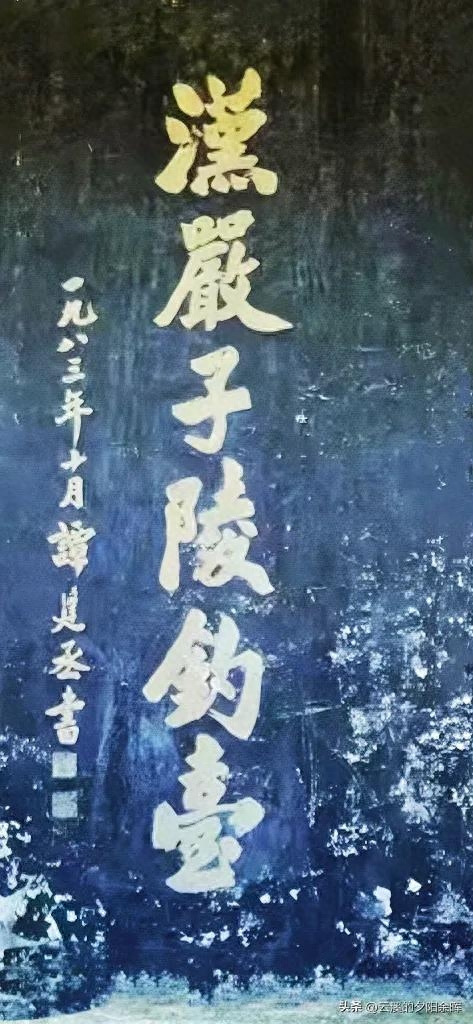 漢嚴子陵釣臺
一九八三年十月譚建丞書
头条 @云溪的夕阳余晖